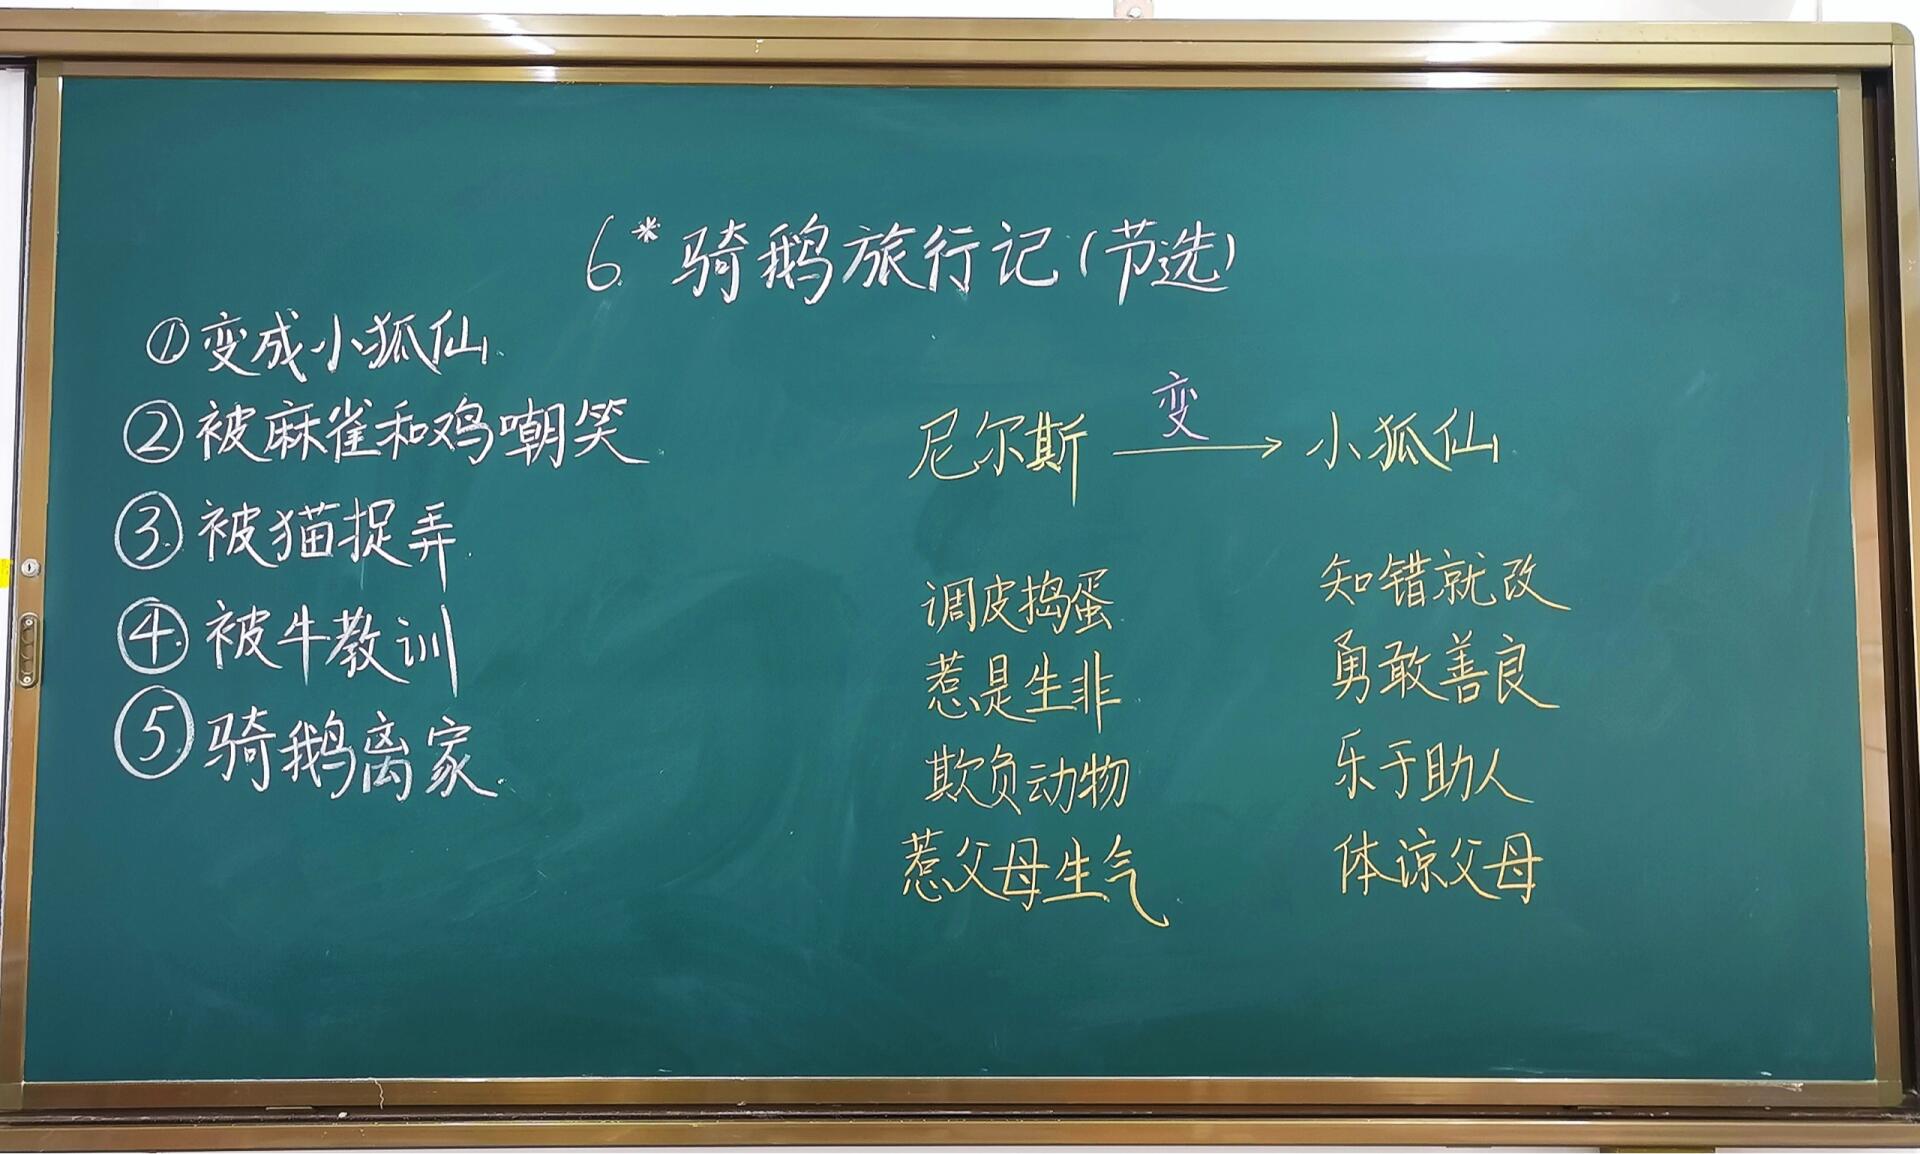 6.*骑鹅旅行记(节选)
①变成小狐仙
②被麻雀和鸡嘲笑
③被猫捉弄
④被牛教训
⑤骑鹅离家
变
尼尔斯 → 小狐仙
调皮捣蛋
惹是生非
欺负动物
惹父母生气
知错就改
勇敢善良
乐于助人
体谅父母